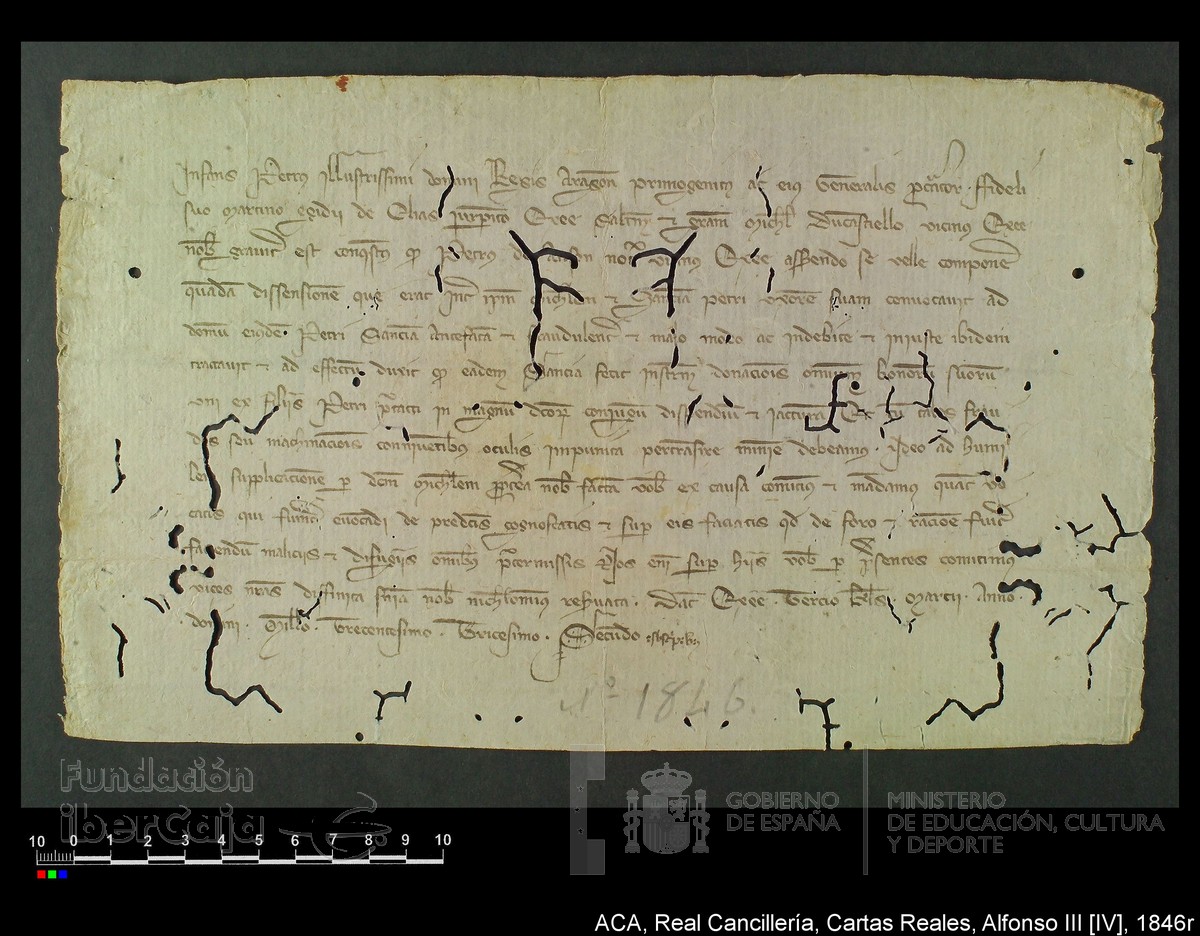 Infans Petrus Illustrissimi domini Regis Aragon primogenitus ac eius Generalis procurator. Fideli
suo Martino egidii de iurisperito Exee Salutem et gratiam Michael vicinus Exee
nob graviter est conquestus quod Petrus de vicinus Exee asserendo se velle componere
quadam dissensione que erat inter ipsum Michlem et Sanciam petri uxorem suam convocavit ad
domum eiusdem Petri Sanciam antefatam et fraudulenter et malo modo ac indebite et iniuste ibidem
tractavit et ad effectum duxit quod eadem Sancia fecit instrum donacionis omnium bonorum suorum
uni ex filiis Petri in magnum dictorum coniugum dispendium et iacturam Et cum tales frau
des seu machinaciois conniventibus oculis impunita pertransire minime debeamus. Ideo ad humi
lem supplicacionem per dictum Michlem nob factam vob ex causa comittimus et mandamus quat vo
catis qui fuerint evocandi de predictis cognoscatis et super eis faciatis quod de foro et racione fuerit
faciendum maliciis et difugiis omnibus pretermissis Nos enim super hiis vob per presentes comittimus
vices nostras diffinita nob reservata. Dat Exee. Tercio kls Marcii. Anno
domini. Millo. Trecentesimo. Tricesimo. Secundo
Nº 1846.
Fundación
iberCaja
GOBIERNO
DE ESPAÑA
MINISTERIO
DE EDUCACIÓN, CULTURA
Y DEPORTE
10 0 1 2 3 4 5 6 7 8 9 10
ACA, Real Cancillería, Cartas Reales, Alfonso III [IV], 1846r